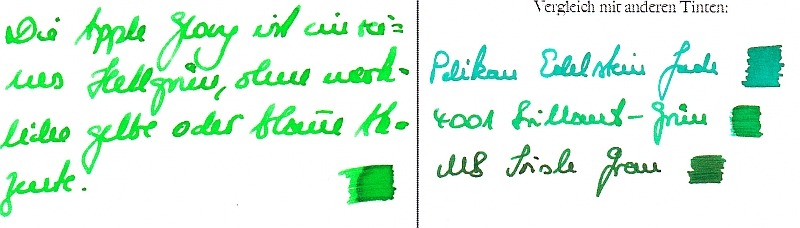 Die Apple Glory ist ein rei=
nes Hellgrün, ohne merk-
liche gelbe oder blaue Ak-
zente.
Vergleich mit anderen Tinten:
Pelikan Edelstein Jade
4001 Brillant-Grün
MB Irish Green